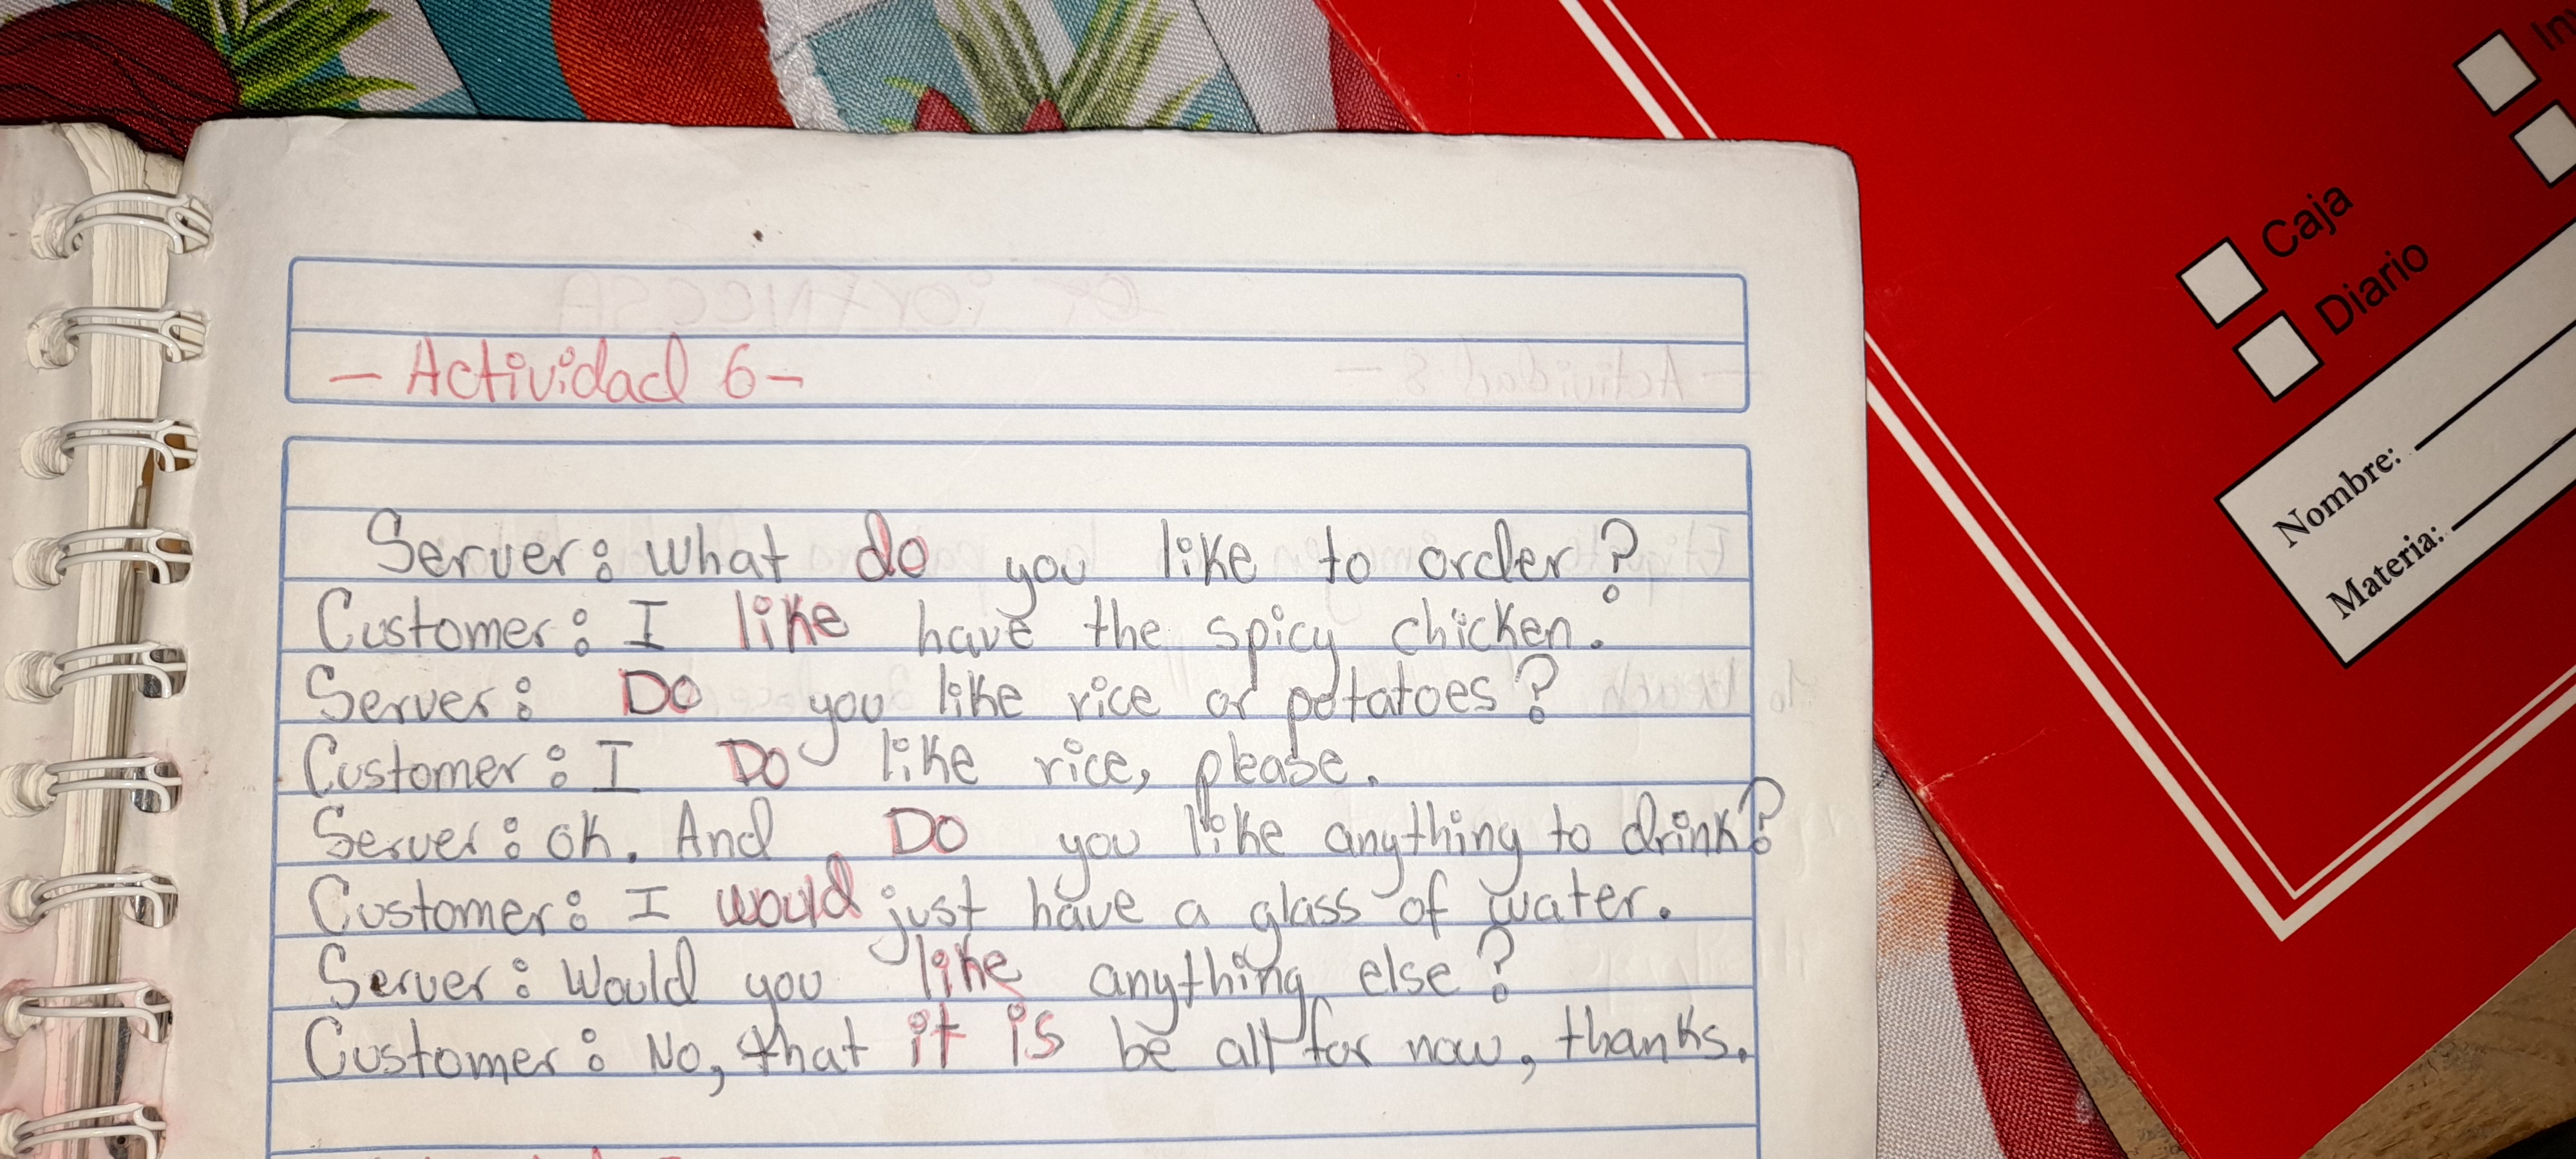 - Actividad 6 -
Server: What do you like to order?
Customer: I like have the spicy chicken.
Server: Do you like rice or potatoes?
Customer: I Do like rice, please.
Server: ok. And Do you like anything to drink?
Customer: I would just have a glass of water.
Server: Would you like anything else?
Customer: No, that it is be all for now, thanks.
Caja
Diario
Nombre:
Materia: